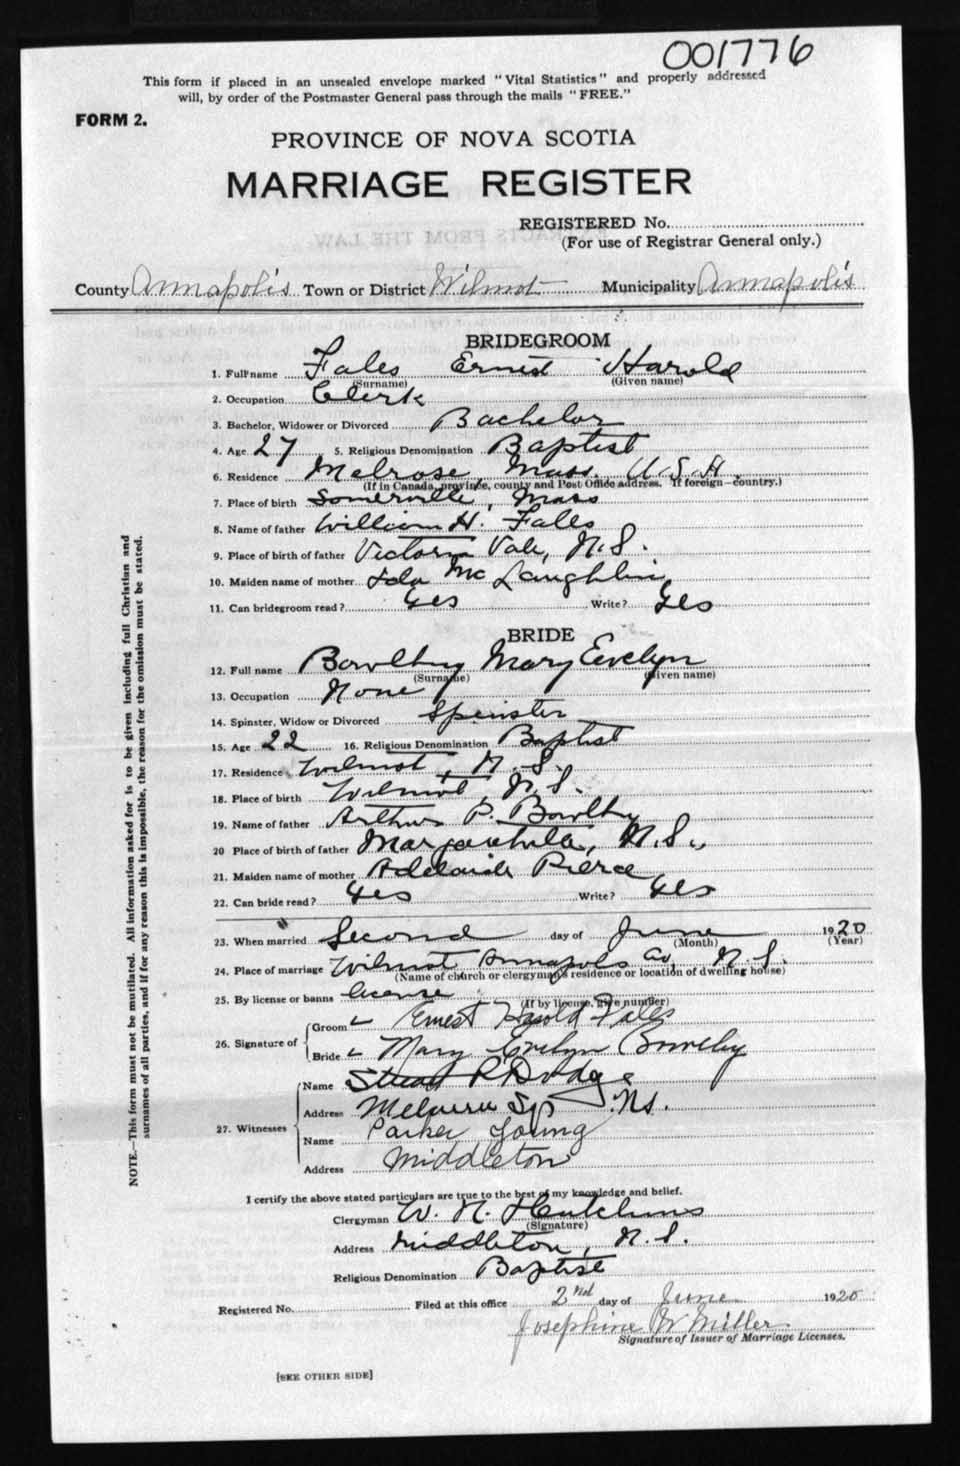 001776
This form if placed in an unsealed envelope marked "Vital Statistics" and properly addressed
will, by order of the Postmaster General pass through the mails "FREE."
FORM 2.
PROVINCE OF NOVA SCOTIA
MARRIAGE REGISTER
REGISTERED No.
(For use of Registrar General only.)
County Annapolis Town or District Wilmot Municipality Annapolis
BRIDEGROOM
1. Full name Fales Ernest Harold
(Surname) (Given name)
2. Occupation Clerk
3. Bachelor, Widower or Divorced Bachelor
4. Age 27 5. Religious Denomination Baptist
6. Residence Melrose, Mass. U.S.A.
(If in Canada, province, county and Post Office address. If foreign—country.)
7. Place of birth Somerville, Mass
8. Name of father William H. Fales
9. Place of birth of father Victoria Vale, N.S.
10. Maiden name of mother Ida McLaughlin
11. Can bridegroom read? Yes Write? Yes
BRIDE
12. Full name Bowlby Mary Evelyn
(Surname) (Given name)
13. Occupation None
14. Spinster, Widow or Divorced Spinster
15. Age 22 16. Religious Denomination Baptist
17. Residence Wilmot, N.S.
18. Place of birth Wilmot, N.S.
19. Name of father Arthur P. Bowlby
20 Place of birth of father Margaretville, N.S.
21. Maiden name of mother Adelaide Pierce
22. Can bride read? Yes Write? Yes
23. When married Second day of June 1920
(Month) (Year)
24. Place of marriage Wilmot Annapolis Co, N.S.
(Name of church or clergyman's residence or location of dwelling house)
25. By license or banns license
(If by license, give number)
26. Signature of
Groom Ernest Harold Fales
Bride Mary Evelyn Bowlby
27. Witnesses
Name R Dodge
Address Melvern Sq NS.
Name Parker Young
Address Middleton
I certify the above stated particulars are true to the best of my knowledge and belief.
Clergyman W. N. Hutchins
(Signature)
Address Middleton, N.S.
Religious Denomination Baptist
Registered No. Filed at this office 2nd day of June 1920
Josephine W Miller
Signature of Issuer of Marriage Licenses.
[SEE OTHER SIDE]
NOTE.—This form must not be mutilated. All information asked for is to be given including full Christian and
surnames of all parties, and if for any reason this is impossible, the reason for the omission must be stated.